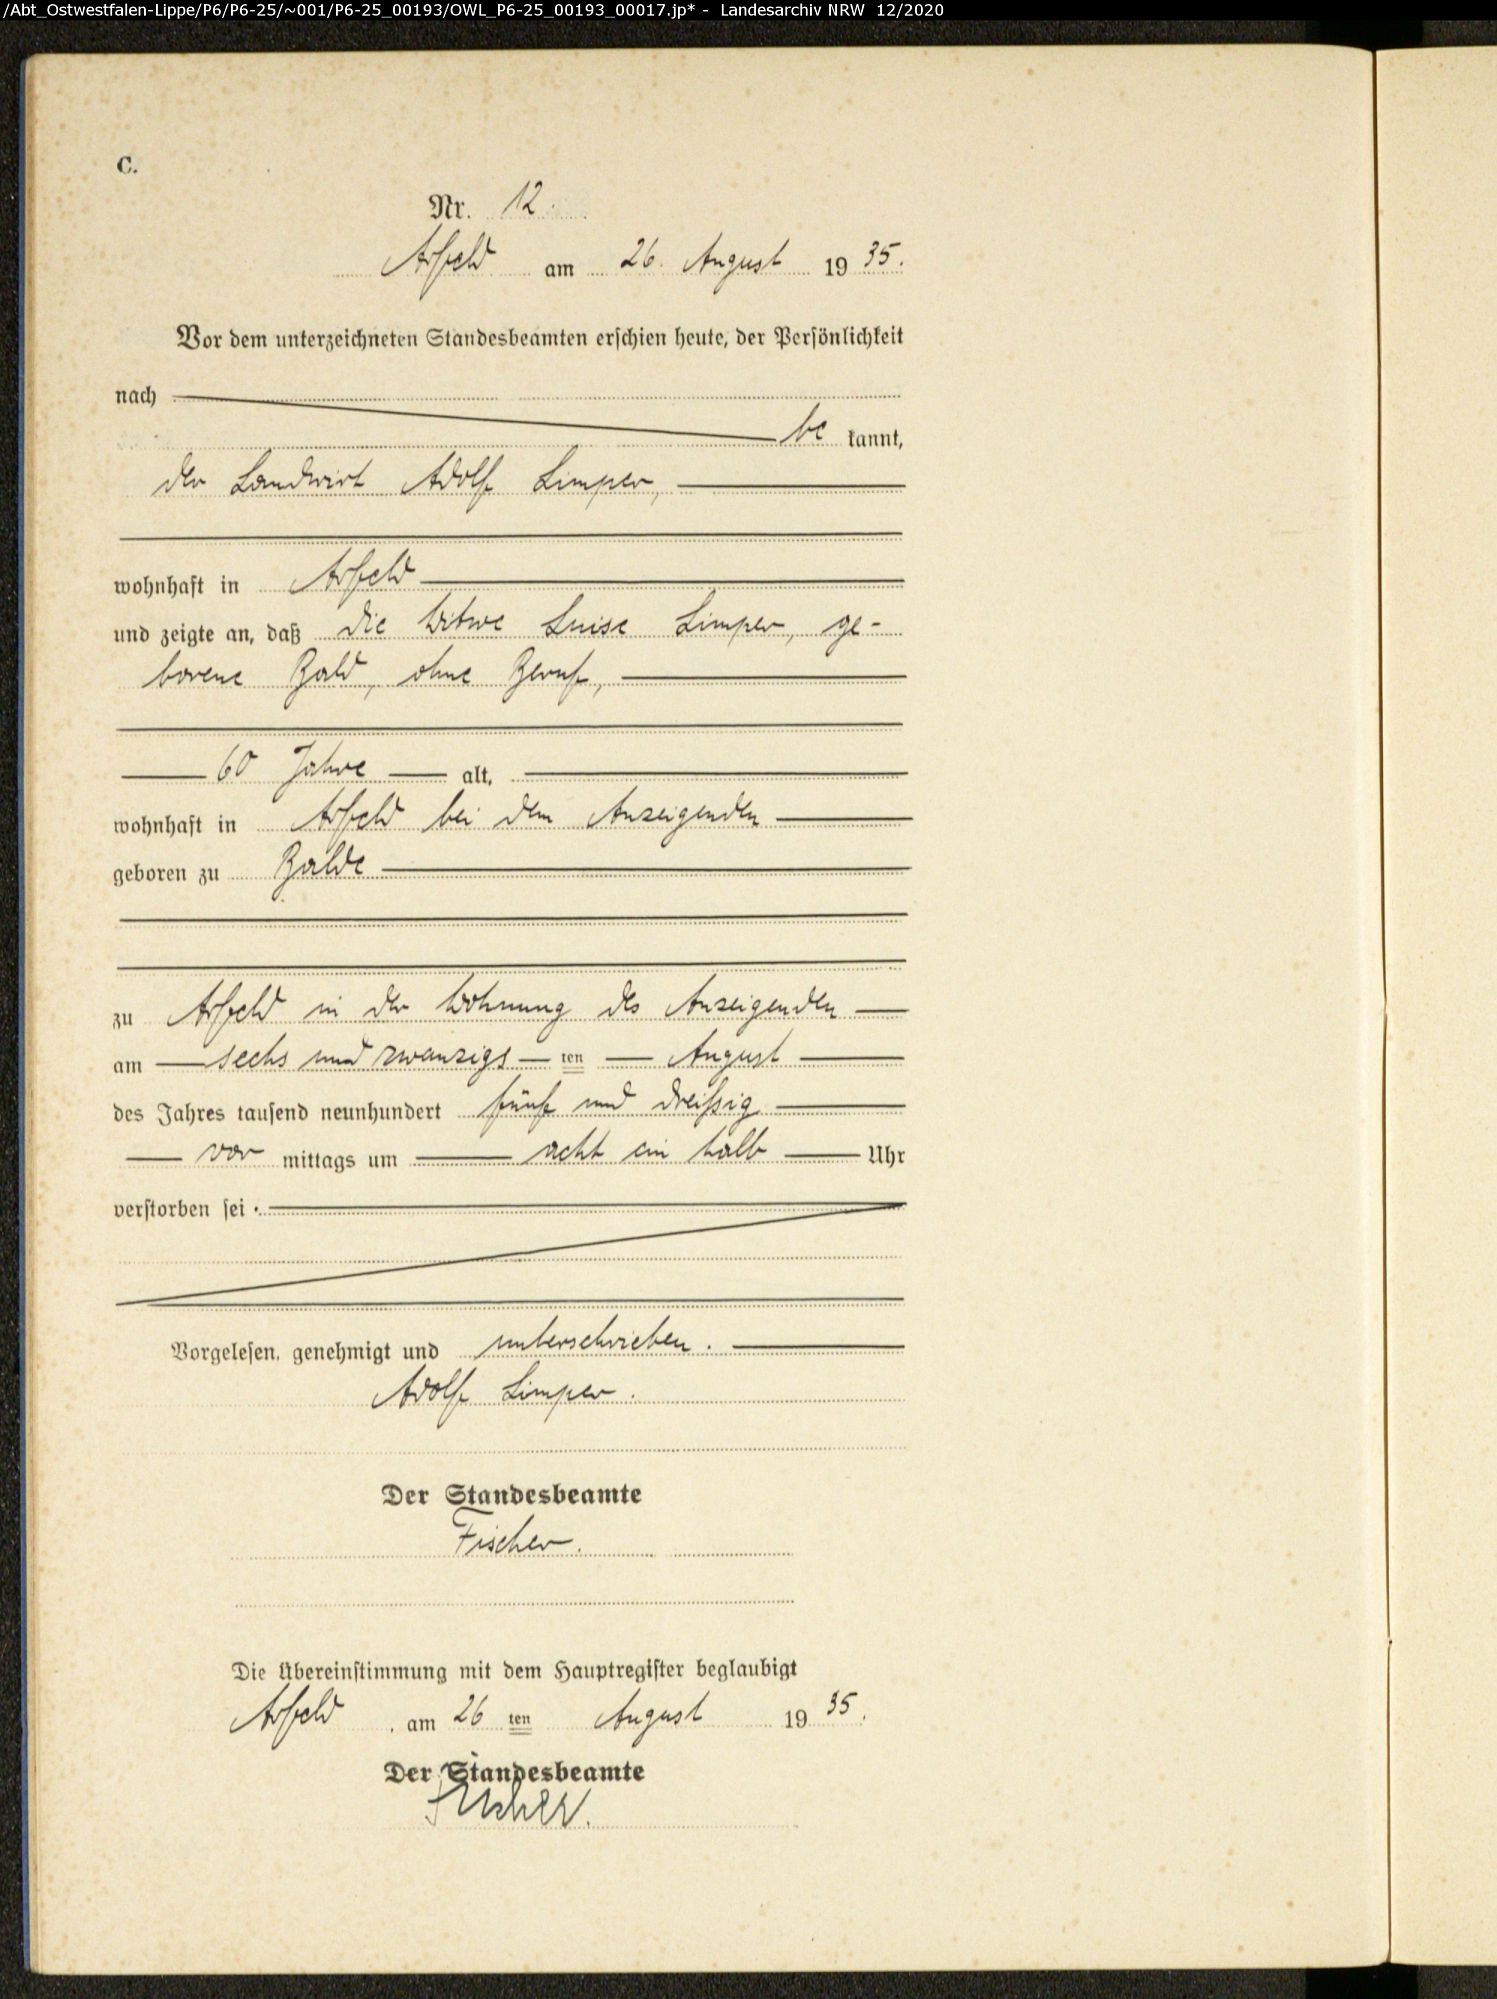 /Abt_Ostwestfalen-Lippe/P6/P6-25/~001/P6-25_00193/OWL_P6-25_00193_00017.jp* - Landesarchiv NRW 12/2020
C.
Nr. 12.
Arfeld am 26. August 1935.
Vor dem unterzeichneten Standesbeamten erschien heute, der Persönlichkeit
nach
be kannt,
der Landwirt Adolf Limper,
wohnhaft in Arfeld
und zeigte an, daß die Witwe Luise Limper, ge-
borene Bald, ohne Beruf,
60 Jahre alt,
wohnhaft in Arfeld bei dem Anzeigenden
geboren zu Balde
zu Arfeld in der Wohnung des Anzeigenden
am sechs und zwanzigs ten August
des Jahres tausend neunhundert fünf und dreißig
vor mittags um acht ein halb Uhr
verstorben sei.
Vorgelesen, genehmigt und unterschrieben.
Adolf Limper.
Der Standesbeamte
Fischer.
Die Übereinstimmung mit dem Hauptregister beglaubigt
Arfeld, am 26 ten August 1935.
Der Standesbeamte
Fischer.